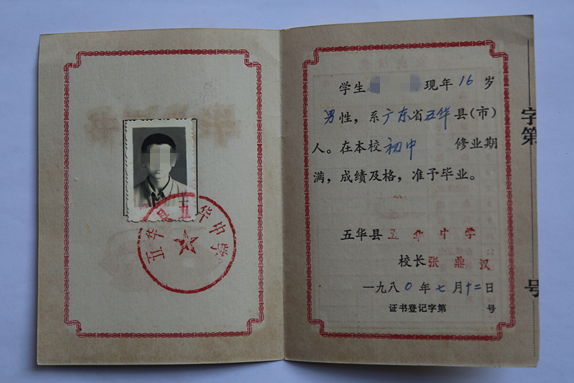 五华县五华中学
学生 现年16岁
男性，系广东省五华县(市)
人。在本校初中 修业期
满，成绩及格，准予毕业。
五华县五华中学
校长张鼎汉
一九八0年七月十二日
证书登记字第 号
字第
号